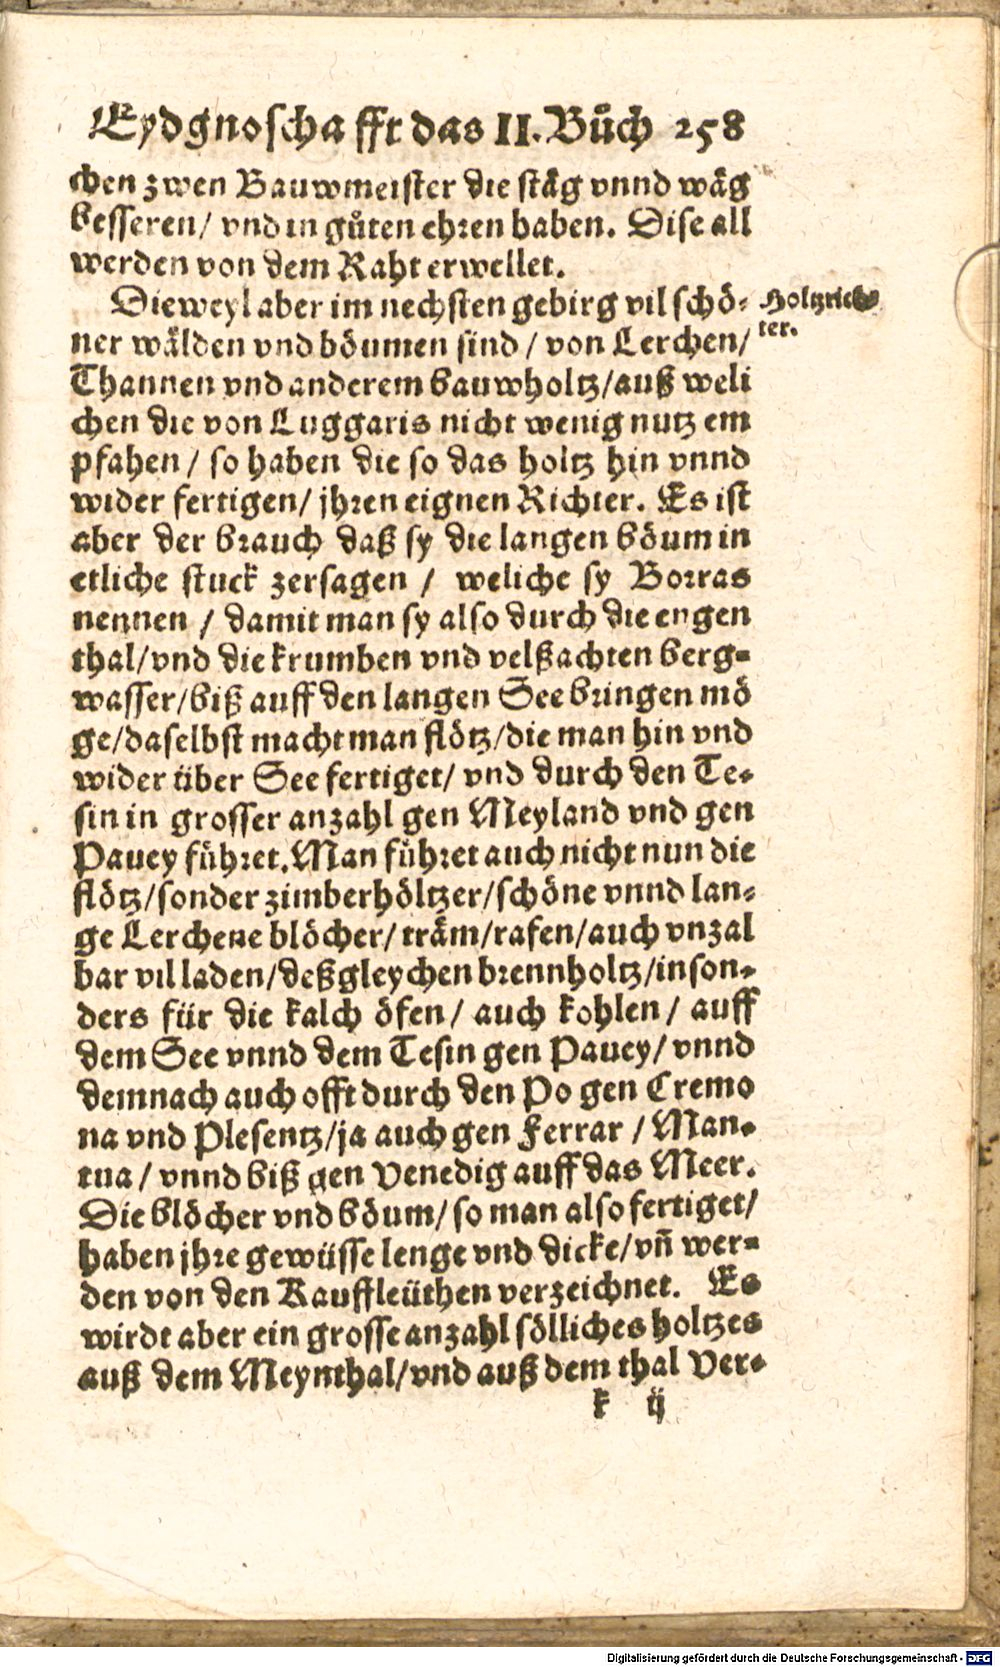 Eydgnoschafft das II. Bůch 258
chen zwen Bauwmeister die stäg vnnd wäg
besseren/ vnd in gůten ehren haben. Dise all
werden von dem Raht erwellet.
Dieweyl aber im nechsten gebirg vil schö-
ner wälden vnd böumen sind / von Lerchen/
Thannen vnd anderem bauwholtz/auß weli
chen die von Luggaris nicht wenig nutz em
pfahen / so haben die so das holtz hin vnnd
wider fertigen/ jhren eignen Richter. Es ist
aber der brauch daß sy die langen böum in
etliche stuck zersagen / weliche sy Borras
nennen / damit man sy also durch die engen
thal/vnd die krumben vnd velßachten berg-
wasser/biß auff den langen See bringen mö
ge/daselbst macht man flötz/die man hin vnd
wider über See fertiget/ vnd durch den Te-
sin in grosser anzahl gen Meyland vnd gen
Pauey führet. Man führet auch nicht nun die
flötz/sonder zimberhöltzer/schöne vnnd lan-
ge Lerchene blöcher/ träm/rafen/auch vnzal
bar vil laden/deßgleychen brennholtz/inson-
ders für die kalch öfen/ auch kohlen/ auff
dem See vnnd dem Tesin gen Pauey/ vnnd
demnach auch offt durch den Po gen Cremo
na vnd Plesentz/ja auch gen Ferrar / Man-
tua / vnnd biß gen Venedig auff das Meer.
Die blöcher vnd böum/ so man also fertiget/
haben jhre gewüsse lenge vnd dicke/vn̄ wer-
den von den Kauffleüthen verzeichnet. Es
wirdt aber ein grosse anzahl sölliches holtzes
auß dem Meynthal/vnd auß dem thal Ver-
k ij
Holtzrich
ter.
Digitalisierung gefördert durch die Deutsche Forschungsgemeinschaft - DFG